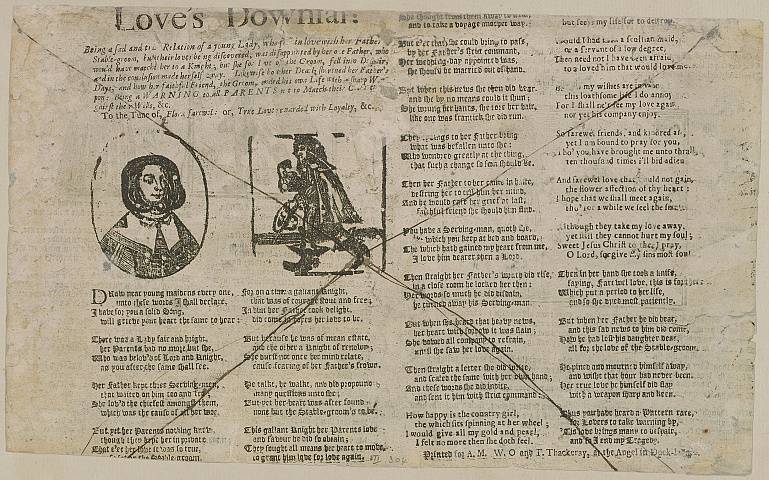 Love's Downfal:
Being a sad and true Relation of a young Lady, who in love with her Father's
Stable-groom, but their love being discovered, was disappointed by her own Father, who
would have matcht her to a Knight, but she for love of the Groom, fell into Despair,
and in the conclusion made herself away. Likewise her Death
Days, and how her faithful Friend, the Groom, ended his own Life with a
Being a WARNING to all PARENTS not to Match their
To the Tune of, Flora farewel: or, True Love rewarded with Loyalty, &c.
DRaw near young maidens every one,
unto these words I shall declare,
I have for you a sad Song,
will grieve your heart the same to hear:
There was a Lady fair and bright,
her Parents had no more but she,
Who was belov'd of Lord and Knight,
as you after the same shall see.
Her Father kept three Serving-men,
that waited on him too and fro,
She lov'd the chiefest among them,
which was the cause of all her woe.
But yet her Parents nothing knew
though they kept her in private
That e're her love it was so true,
For on a time a gallant Knight,
that was of courage stout and free;
In him her Father took delight,
did come to woo her his love to be.
But because he was of mean estate,
and the other a Knight of renown;
She durst not once her mind relate,
cause fearing of her Father's frown.
He talkt, he walkt, and did propound
many questions unto she;
But yet her heart was after found
none but the Stable-groom's to be.
This gallant Knight her Parents love
and favour he did so obtain;
They sought all means her heart to move,
to grant him love for love again.
she thought from them away to
and to take a voyage
But e'er that she could bring to pass,
by her Father's strict command,
Her wedding-day appointed was,
she should be married out of hand.
But when this news she then did hear,
and she by no means could it shun;
She wrung her hands, she tore her hair,
like one was frantick she did run.
to her Father bring
what was befallen unto she:
Who wondred greatly at the thing,
that such a change so soon should be.
Then her Father to her came in haste,
desiring her to tell him her mind,
And he would ease her grief at last,
faithful friend she should him find.
You have a Serving-man, quoth she,
which you keep at bed and board,
The which hath gained my heart from me,
I love him dearer then a Lord.
Then straight her Father's wrath did rise,
in a close room he locked her then;
Her words so much he did despise,
he turned away his Serving-man.
But when she heard that heavy news,
her heart with sorrow it was slain;
She vowed all company to refrain,
until she saw her love again.
Then straight a letter she did write,
and sealed the same with her own hand;
And these words she did indite,
and sent it him with strict command:
How happy is the country girl,
the which sits spinning at her wheel;
I would give all my gold and pearl,
I felt no more then she doth feel.
but seeks my life for to destroy.
Would I had been a scullian maid,
or a servant of low degree,
Then need not I have been afraid
to a loved him that would love me.
my wishes are in vain
this loathsome life I do annoy
For I shall ne'er see my love again
nor yet his company enjoy.
So farewel friends, and kindred all,
yet I am bound to pray for you,
Tho' you have brought me unto thrall,
ten thousand times i'll bid adieu
And farewel love that could not gain,
the flower affection of thy heart:
I hope that we shall meet again,
tho' for a while we feel the smart
Although they take my love away,
yet still they cannot hurt my soul;
Sweet Jesus Christ to thee I pray,
O Lord, forgive my sins most foul
Then in her hand she took a knife,
saying, Farewel love, this is for thee:
Which put a period to her life,
and so she dyed most patiently.
But when her Father he did hear,
and this sad news to him did come,
How he had lost his daughter dear,
all for the love of the Stable-groom.
He pined and mourned himself away,
and wisht that hour had never been.
Her true love he himself did slay
with a weapon sharp and keen.
Thus you have heard a Pattern rare,
for Lovers to take warning by,
'Tis love brings many to despair,
and so I end my Tragedy.
Printed for A. M. W. O and T. Thackeray, at the Angel in Duck-lane.